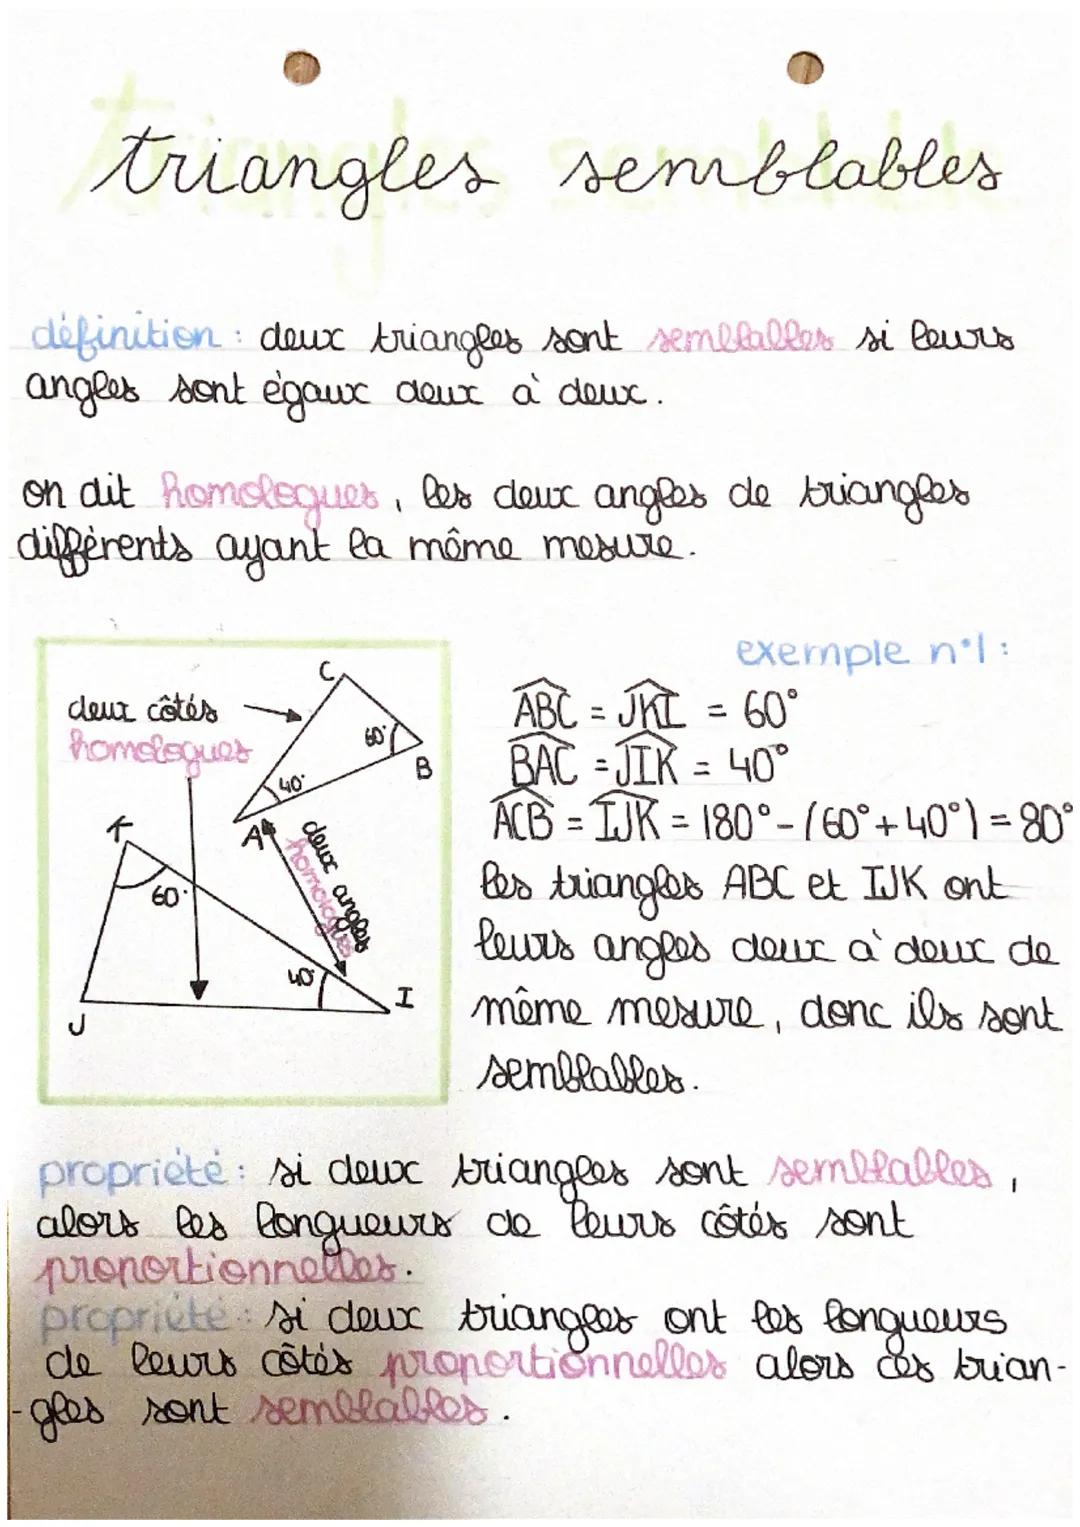 triangles semblables
définition : deux triangles sont semblables si leurs
angles sont égaux deux à deux.
on dit homologues, les deux angles de triangles
différents ayant la même mesure.
deux côtés
homologues
C
60°
B
40°
A
deux angles
homologues
K
60°
40°
I
J
exemple n°1 :
ABC = JKI = 60°
BAC = JIK = 40°
ACB = IJK = 180° - (60° + 40°) = 80°
les triangles ABC et IJK ont
leurs angles deux à deux de
même mesure, donc ils sont
semblables.
propriété : si deux triangles sont semblables,
alors les longueurs de leurs côtés sont
proportionnelles.
propriété : si deux triangles ont les longueurs
de leurs côtés proportionnelles alors ces trian-
-gles sont semblables.